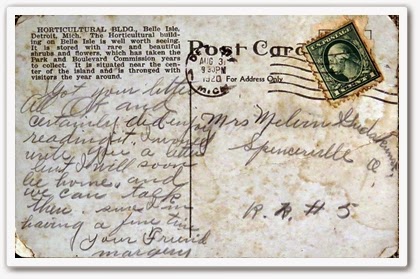 HORTICULTURAL BLDG., Belle Isle,
Detroit, Mich. The Horticultural build-
ing on Belle Isle is well worth seeing.
It is stored with rare and beautiful
shrubs and flowers, which has taken the
Park and Boulevard Commission years
to collect. It is situated near the cen-
ter of the island and is thronged with
visitors the year around.
Post Card
AUG 31
930PM
1920
MICH
For Address Only
Got your letter
certainly did enjoy
reading it. I would
write you a letter
but I will soon
be home, and
we can talk
then. sure I'm
having a fine time
Your Friend
Mrs Melvin
Spencerville
O.
R. R. #5